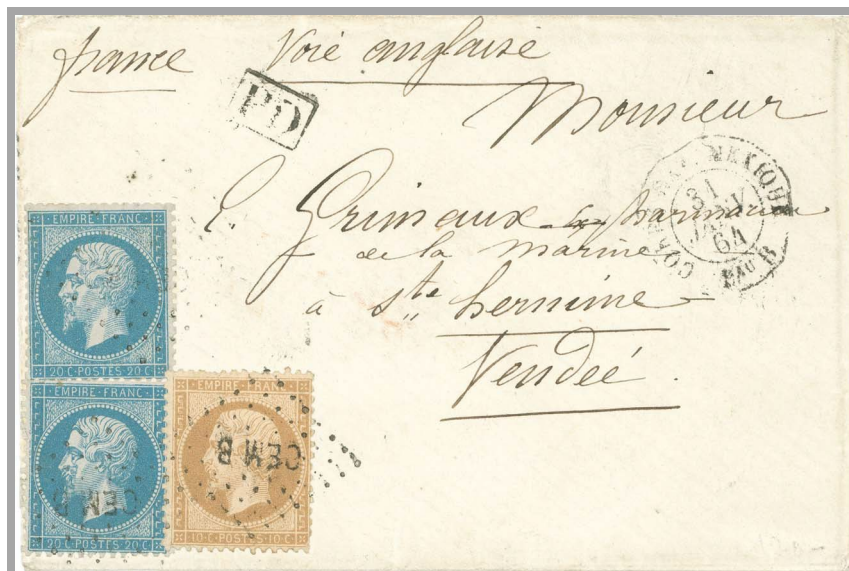 france Voie anglaise
PD
Monsieur
E. Grimaux pharmacien
de la marine
à Ste hermine
Vendée.
MEXIQUE
31
JANV.
64
Bau B
EMPIRE FRANC
20 C POSTES 20 C
EMPIRE FRANC
20 C POSTES 20 C
CEM B
EMPIRE FRANC
10 C POSTES 10 C
CEM B